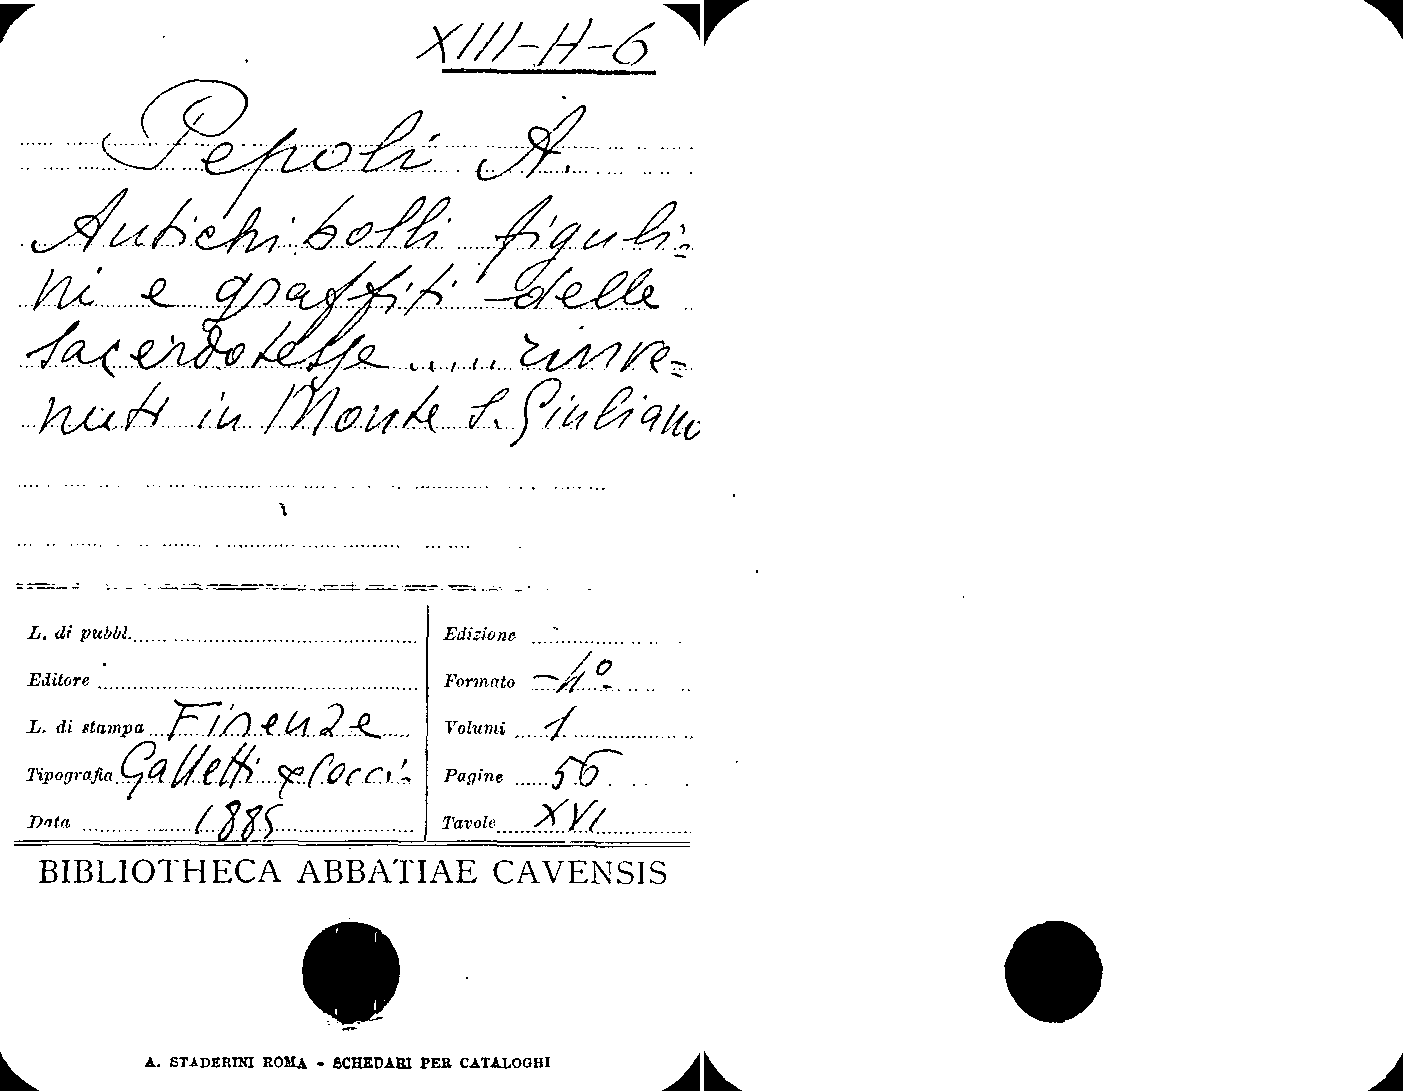 XIII-H-6
Pepoli A.
Antichi bolli figuli=
ni e graffiti delle
sacerdotesse ..... rinve=
nuti in Monte S. Giuliano
L. di pubbl.
Edizione
Editore
Formato -4°
L. di stampa Firenze
Volumi 1
Tipografia Galletti e Cocci
Pagine 56
Data 1885
Tavole XVI
BIBLIOTHECA ABBATIAE CAVENSIS
A. STADERINI ROMA - SCHEDARI PER CATALOGHI